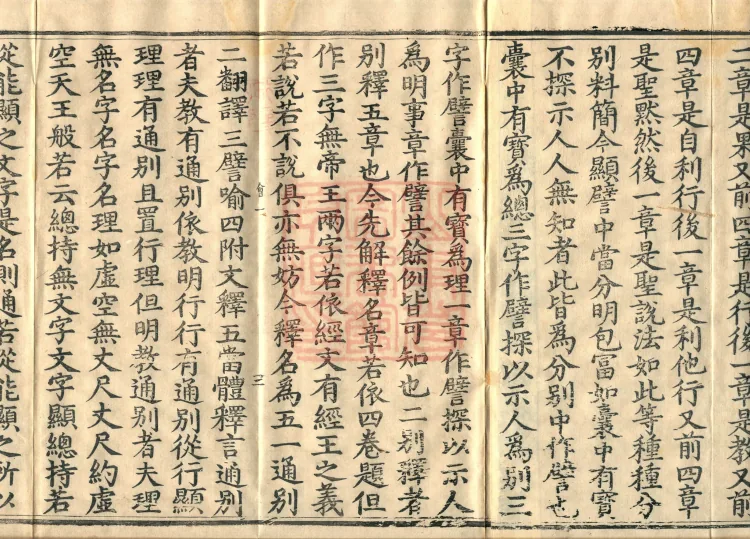 二章是果又前四章是行後一章是教又前
四章是自利行後一章是利他行又前四章
是聖黙然後一章是聖說法如此等種種分
別料簡今顯譬中當分明包富如囊中有寶
不探示人人無知者此皆爲分別中作譬也
囊中有寶爲總三字作譬探以示人爲別三
字作譬囊中有寶爲理一章作譬探以示人
爲明事章作譬其餘例皆可知也二別釋者
別釋五章也今先解釋名章若依四卷題但
作三字無帝王兩字若依經文有經王之義
若說若不說俱亦無妨今釋名爲五一通別
二翻譯三譬喻四附文釋五當體釋言通別
者夫教有通別依教明行行有通別從行顯
理理有通別且置行理但明教通別者夫理
無名字名字名理如虛空無丈尺丈尺約虛
空天王般若云總持無文字文字顯總持若
從能顯之文字是名則通若從能顯之所以
三